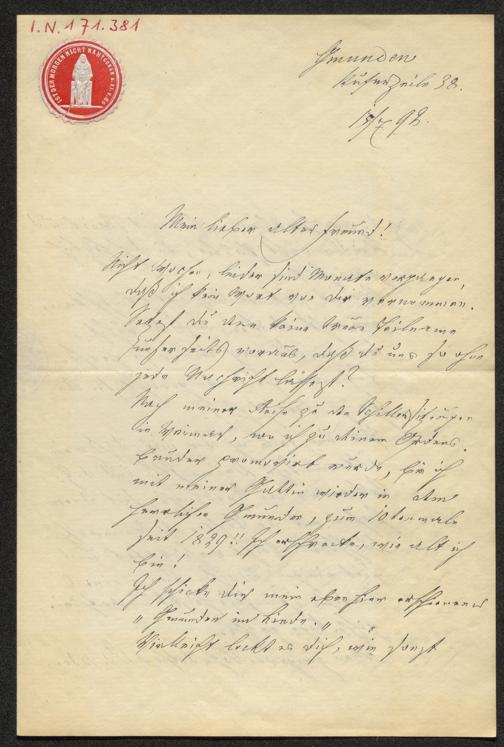 I.N. 171.381
IST DER MORGEN NICHT
Gmunden
Kuferzeile 38.
15/7 92.
Mein lieber alter Freund!
Nicht Wochen, leider sind Monate vergangen,
daß ich kein Wort von dir vernommen.
Setzest du denn keine Theilname
unserseits voraus, daß du uns so ohne
jede Nachricht lässest?
Nach meiner Reise zu den Schillersitzungen
in Weimar, wo ich zu deinem Ordens-
bruder promovirt wurde, bin ich
mit meiner Gattin wieder in dem
herrlichen Gmunden, zum 10tenmale
seit 18 !! Ich erschrecke, wie alt ich
bin!
Ich schicke dir mein eben hier erschienenes
„Gmunden im Liede."
Vielleicht lockt es dich, wie sonst